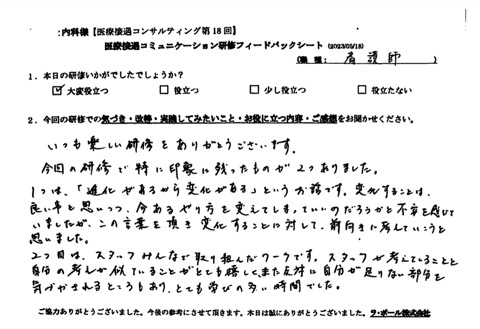 :内科様【医療接遇コンサルティング第18回】
医療接遇コミュニケーション研修フィードバックシート (2023/05/18)
(職種: 看護師 )
1. 本日の研修いかがでしたでしょうか?
☑大変役立つ □役立つ □少し役立つ □役立たない
2. 今回の研修での気づき・改善・実践してみたいこと・お役に立つ内容・ご感想をお聞かせください。
いつも楽しい研修をありがとうございます。
今回の研修で特に印象に残ったものが2つありました。
1つは、「進化があるから変化がある」というお話です。変化することは、
良い事と思いつつ、今あるやり方を変えてしまっていいのだろうかと不安を感じて
いましたが、この言葉を頂き変化することに対して、前向きに考えていこうと
思いました。
2つ目は、スタッフみんなで取り組んだワークです。スタッフが考えていることと
自分の考えが似ていることがとても嬉しく、また反対に自分が足りない部分を
気づかされるところもあり、とても学びの多い時間でした。
ご協力ありがとうございました。今後の参考にさせて頂きます。本日は誠にありがとうございました。ラ・ポール株式会社